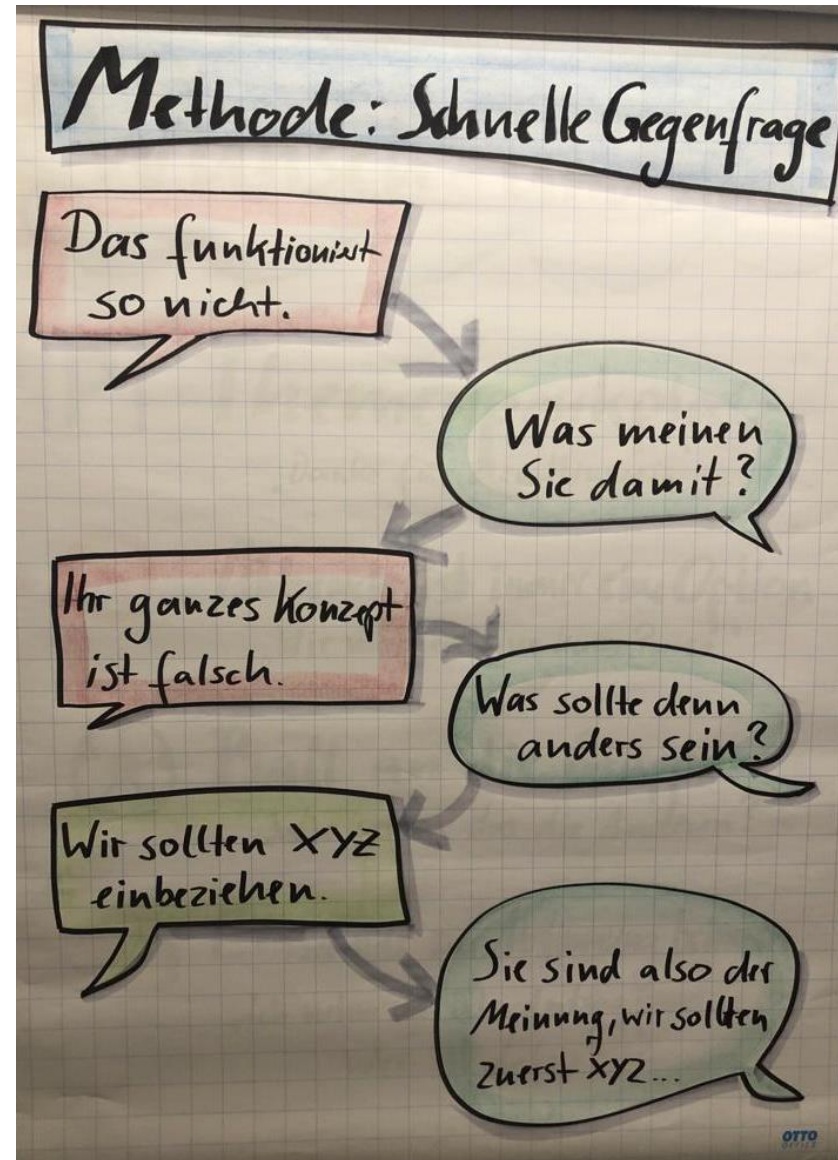 Methode: Schnelle Gegenfrage
Das funktioniert
so nicht.
Was meinen
Sie damit?
Ihr ganzes Konzept
ist falsch.
Was sollte denn
anders sein?
Wir sollten XYZ
einbeziehen.
Sie sind also der
Meinung, wir sollten
zuerst XYZ...
OTTO
OFFICE